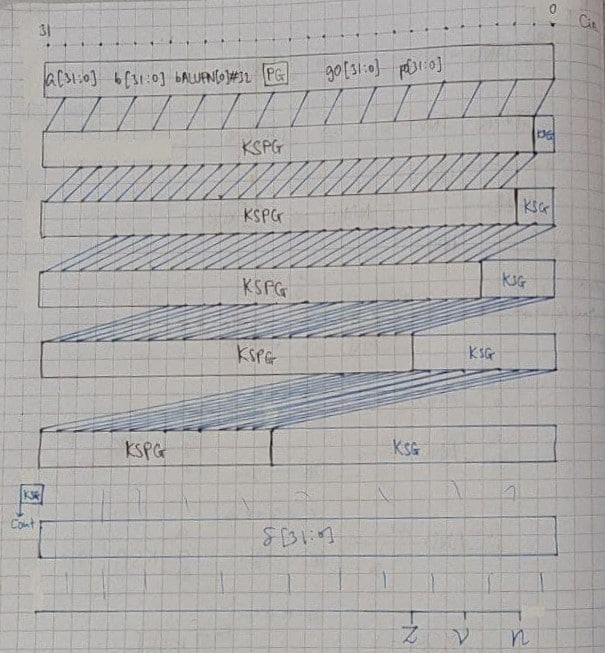 31 0 Cin
a[31:0] b[31:0] bALUFN[0]#32 PG g0[31:0] p[31:0]
KSPG KSG
KSPG KSG
KSPG KSG
KSPG KSG
KSPG KSG
KSG
Cout
S[31:0]
Z V N